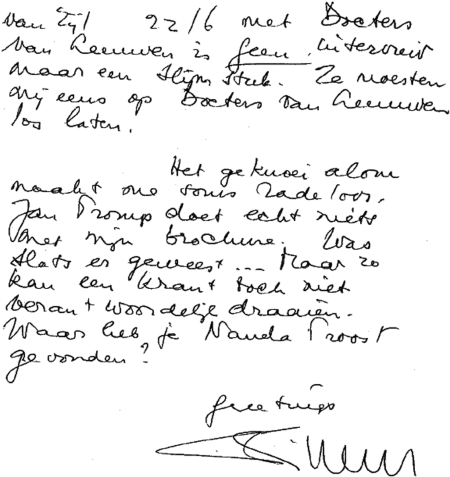 van Zijl 22/6 met Docters
van Leeuwen is geen interview
maar een slijm stuk. Ze moesten
mij eens op Docters van Leeuwen
los laten.
Het geknoei alom
maakt me soms radeloos.
Jan Tromp doet echt niets
met mijn brochure. Was
Stats er geweest... Maar zo
kan een krant toch niet
verantwoordelijk draaien.
Waar heb je Nanda Troost
gevonden?
greetings